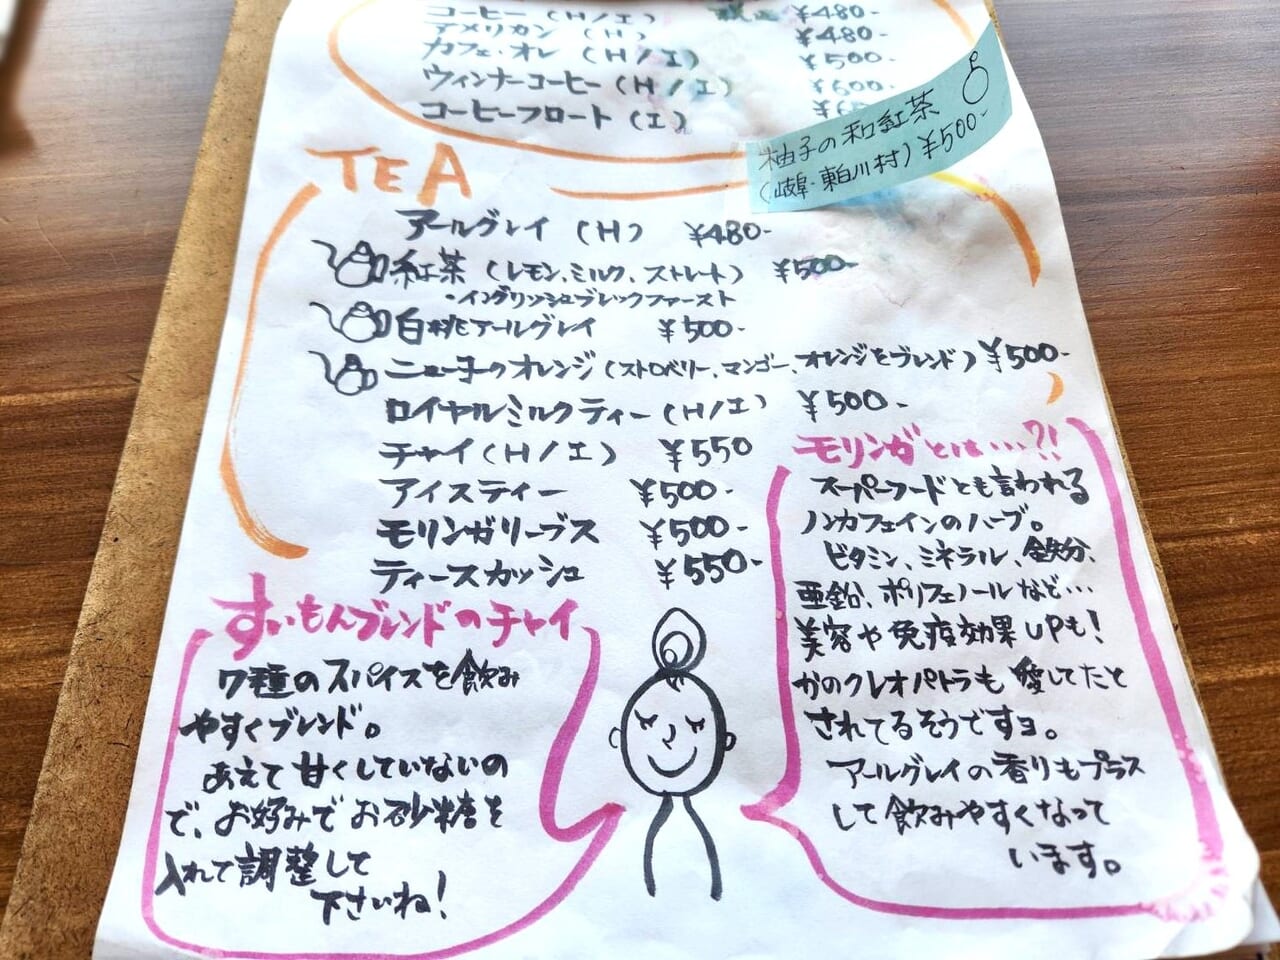 コーヒー(H/I) ¥480-
アメリカン(H) ¥480-
カフェ・オレ(H/I) ¥500-
ウィンナーコーヒー(H/I) ¥600-
コーヒーフロート(I)
柚子の和紅茶
(岐阜・東白川村)¥500-
TEA
アールグレイ(H) ¥480-
紅茶(レモン、ミルク、ストレート) ¥500-
・イングリッシュブレックファースト
白桃アールグレイ ¥500-
ニューヨークのオレンジ(ストロベリー、マンゴー、オレンジをブレンド)¥500-
ロイヤルミルクティー(H/I) ¥500-
チャイ(H/I) ¥550
アイスティー ¥500-
モリンガリーブス ¥500-
ティースカッシュ ¥550-
すいもんブレンドのチャイ
7種のスパイスを飲み
やすくブレンド。
あえて甘くしていないの
で、お好みでお砂糖を
入れて調整して
下さいね!
モリンガとは…?!
スーパーフードとも言われる
ノンカフェインのハーブ。
ビタミン、ミネラル、鉄分、
亜鉛、ポリフェノールなど…
美容や免疫効果UPも!
かのクレオパトラも愛してたと
されてるそうですヨ。
アールグレイの香りもプラス
して飲みやすくなって
います。